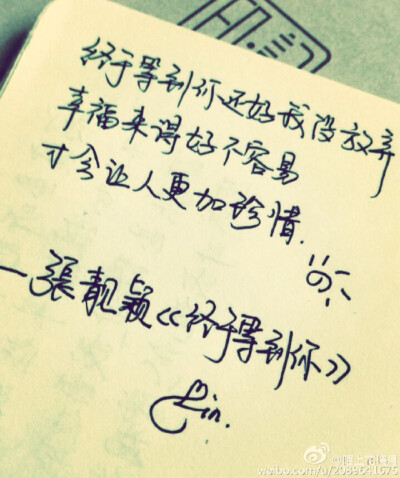 终于等到你还好我没放弃
幸福来得好不容易
才会让人更加珍惜.
—張靓颖《终于等到你》
in.
weibo.com/u/2089641075